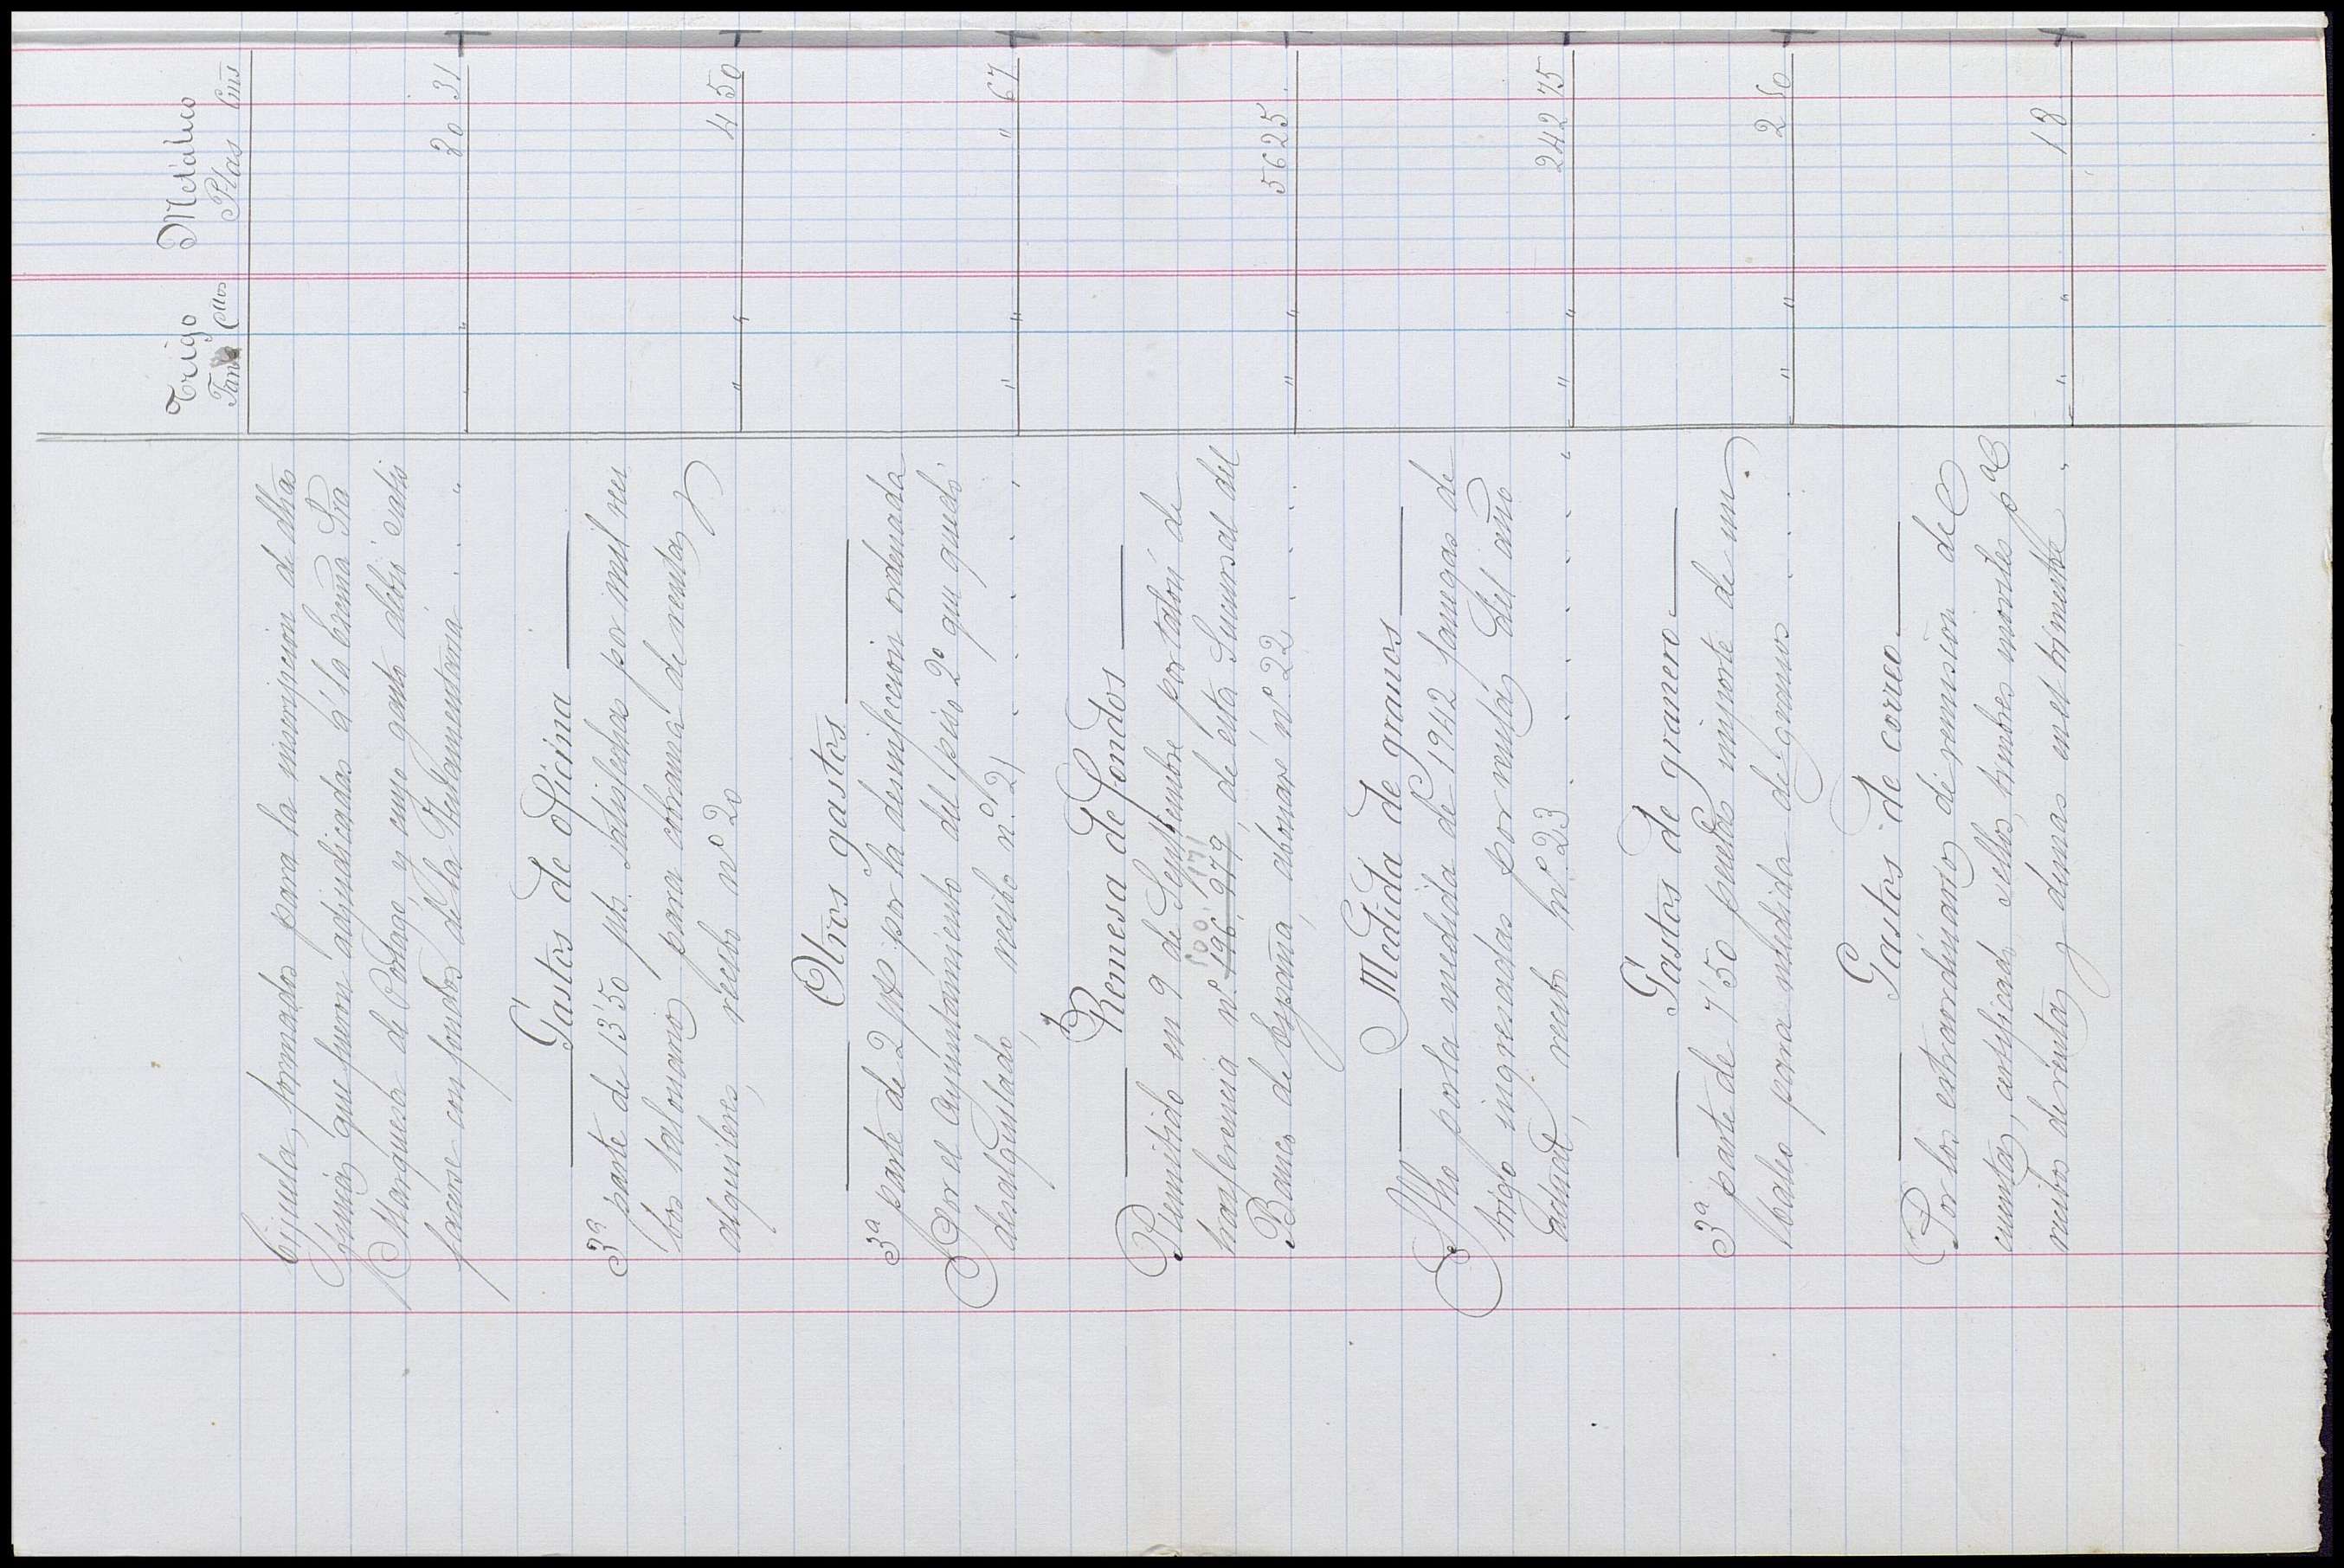 Trigo Metálico
Fans Cllos Ptas Cms
hijuela, formada para la inscripcion de dhas
fincas que fueron adjudicadas á la Excma Sra
Marquesa de Portago y cuyo gasto debió satis
facerse con fondos de la Testamentaria . . . " " " 20 31
Gastos de oficina
3ª parte de 13'50 pts. satisfechas por mil reci
bos talonarios para cobranza de rentas y
alquileres, recibo nº 20 " " 4 50
Otros gastos
3ª parte de 2 pts por la desinfeccion ordenada
por el Ayuntamiento del piso 2º que quedó
desalquilado, recibo nº 21 . . . . " " " 67
Remesa de fondos
Remitido en 9 de Septiembre por talon de
500 171
transferencia nº 496,979, de esta Sucursal del
Banco de España, abonaré nº 22 . . . . " " 5625 .
Medida de granos
Sfho por la medida de 1942 fanegas de
trigo ingresadas por rentas del año
actual, recibo nº 23 . . . . . . " " " 242 75
Gastos de granero
3ª parte de 7'50 pesetas importe de un
baleo para medida de granos . . . . " " 2 50
Gastos de correo
Por los extraordinarios de remision de
cuentas, certificado, sellos, timbres moviles pª
recibos de rentas y demas en el trimestre . " " " 18